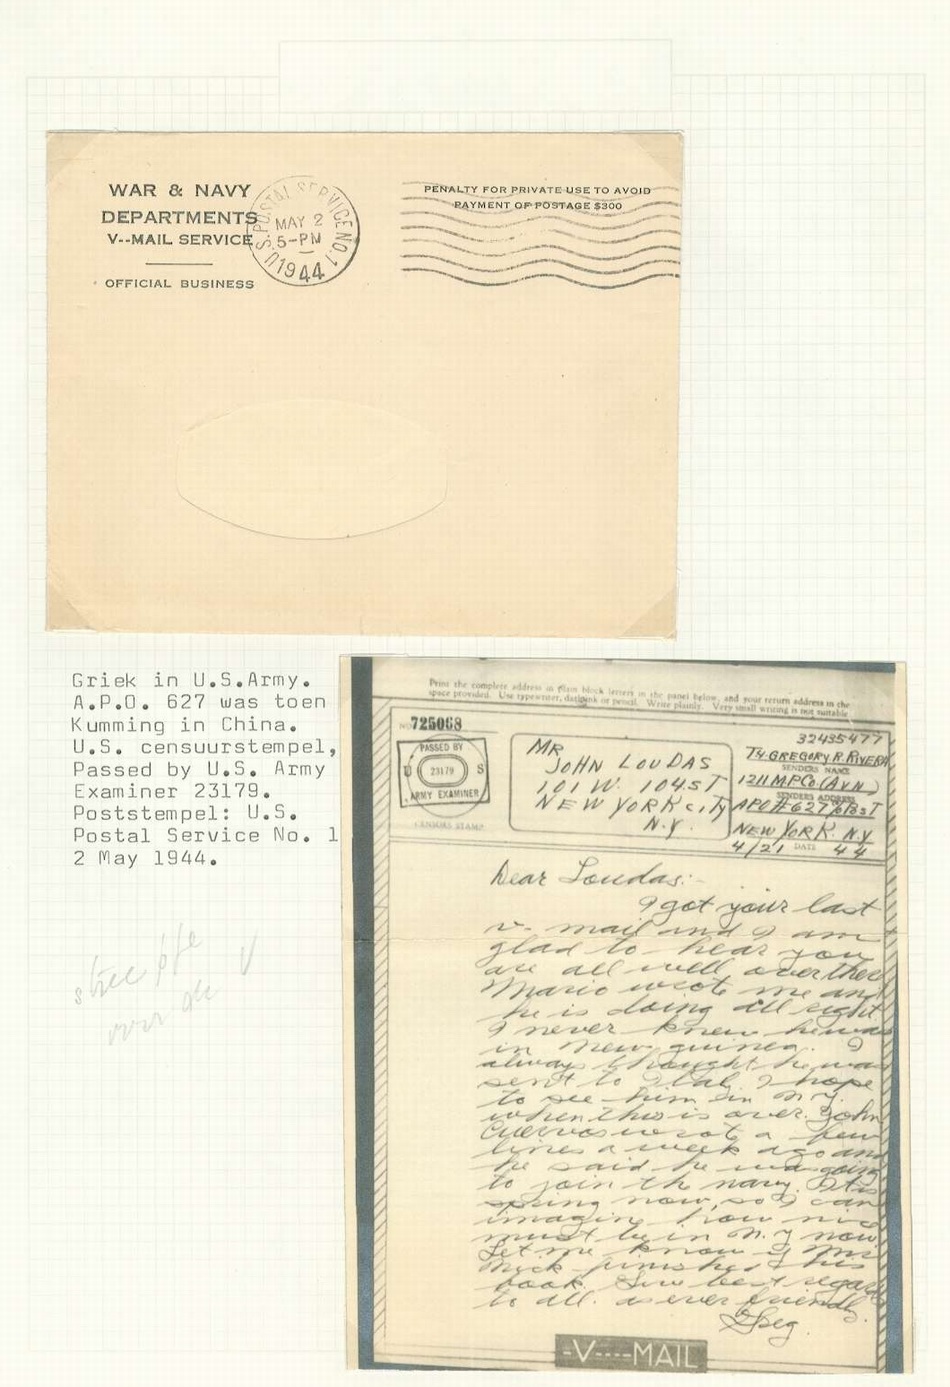 WAR & NAVY
DEPARTMENTS
V--MAIL SERVICE
OFFICIAL BUSINESS
U.S. POSTAL SERVICE NO. 1
MAY 2
5-PM
1944
PENALTY FOR PRIVATE USE TO AVOID
PAYMENT OF POSTAGE $300
Griek in U.S.Army.
A.P.O. 627 was toen
Kumming in China.
U.S. censuurstempel,
Passed by U.S. Army
Examiner 23179.
Poststempel: U.S.
Postal Service No. 1
2 May 1944.
Print the complete address in plain block letters in the panel below, and your return address in the
space provided. Use typewriter, dark ink or pencil. Write plainly. Very small writing is not suitable
No. 725068
PASSED BY
U 23179 S
ARMY EXAMINER
CENSOR'S STAMP
MR
JOHN LOUDAS
101 W. 104 ST
NEW YORK CITY
N.Y.
32435477
T4-GREGORY R. RIVERA
SENDER'S NAME
1211 M.P. CO (AVN)
SENDER'S ADDRESS
APO # 627
NEW YORK. N.Y
4/21 DATE 44
Dear Loudas:-
I got your last
v-mail and I am
glad to hear you
are all well over there
Mario wrote me and
he is doing all right.
I never knew he was
in New guinea. I
always thought he was
sent to I hope
to see him in N.Y.
when this is over. John
Cuervos wrote a few
lines a week ago and
he said he was going
to join th navy. It is
spring now, so I can
imagine how nice
must be in N.Y now
Let me know if
Mick finished his
book. best regards
to all. as ever friendly.
Greg.
-V----MAIL